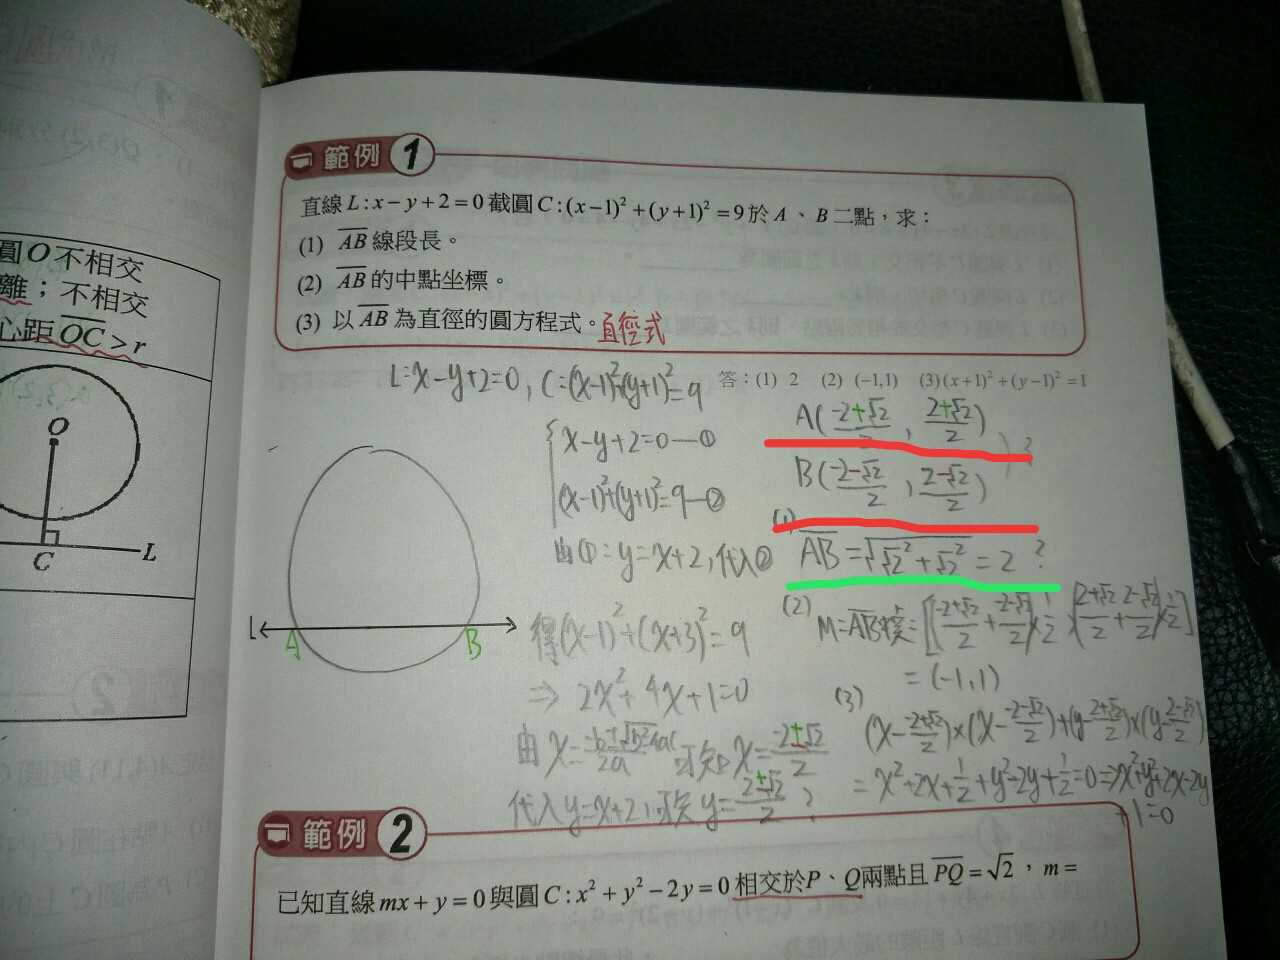 圓O不相交
離；不相交
心距OC>r
O
C
L
範例 1
直線L:x−y+2=0截圓C:(x−1)²+(y+1)²=9於A、B二點，求：
(1) AB線段長。
(2) AB的中點坐標。
(3) 以AB為直徑的圓方程式。直徑式
答：(1) 2 (2) (−1,1) (3)(x+1)²+(y−1)²=1
L:x−y+2=0, C:(x−1)²+(y+1)²=9
x−y+2=0—①
(x−1)²+(y+1)²=9—②
由①:y=x+2,代入②
得(x−1)²+(x+3)²=9
⇒ 2x²+4x+1=0
由 x=(−b±√(b²−4ac))/2a 可知 x=(−2±√2)/2
代入y=x+2,可知 y=(2±√2)/2 ?
L
A
B
A((−2+√2)/2, (2+√2)/2)
B((−2−√2)/2, (2−√2)/2)
?
(1)
AB=√(√2²+√2²)=2 ?
(2) M=AB中點=[((−2+√2)/2+(−2−√2)/2)×1/2, ((2+√2)/2+(2−√2)/2)×1/2]
=(−1,1)
(3)
(x−(−2+√2)/2)×(x−(−2−√2)/2)+(y−(2+√2)/2)×(y−(2−√2)/2)
=x²+2x+1/2+y²−2y+1/2=0⇒x²+y²+2x−2y
+1=0
範例 2
已知直線mx+y=0與圓C:x²+y²−2y=0相交於P、Q兩點且PQ=√2，m=